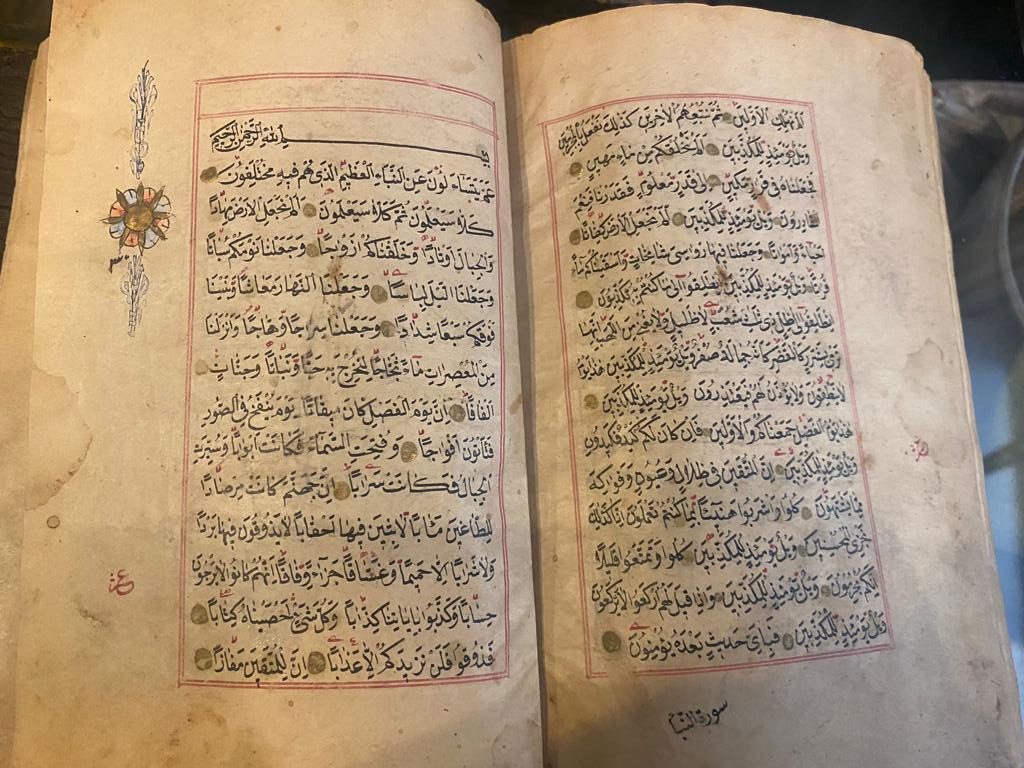 الم نهلك الاولين ثم نتبعهم الاخرين كذلك نفعل بالمجرمين
ويل يومئذ للمكذبين الم نخلقكم من ماء مهين
فجعلناه في قرار مكين الى قدر معلوم فقدرنا فنعم
القادرون ويل يومئذ للمكذبين الم نجعل الارض كفاتا
احياء وامواتا وجعلنا فيها رواسي شامخات واسقيناكم ماء
فراتا ويل يومئذ للمكذبين انطلقوا الى ما كنتم به تكذبون
انطلقوا الى ظل ذي ثلث شعب لا ظليل ولا يغني من اللهب انها
ترمي بشرر كالقصر كانه جمالة صفر ويل يومئذ للمكذبين هذا يوم
لا ينطقون ولا يؤذن لهم فيعتذرون ويل يومئذ للمكذبين
هذا يوم الفصل جمعناكم والاولين فان كان لكم كيد فكيدون
ويل يومئذ للمكذبين ان المتقين في ظلال وعيون وفواكه
مما يشتهون كلوا واشربوا هنيئا بما كنتم تعملون انا كذلك
نجزي المحسنين ويل يومئذ للمكذبين كلوا وتمتعوا قليلا
انكم مجرمون ويل يومئذ للمكذبين واذا قيل لهم اركعوا لا يركعون
ويل يومئذ للمكذبين فباي حديث بعده يؤمنون
سورة النبأ
بسم الله الرحمن الرحيم
عم يتساءلون عن النباء العظيم الذي هم فيه مختلفون
كلا سيعلمون ثم كلا سيعلمون الم نجعل الارض مهادا
والجبال اوتادا وخلقناكم ازواجا وجعلنا نومكم سباتا
وجعلنا الليل لباسا وجعلنا النهار معاشا وبنينا
فوقكم سبعا شدادا وجعلنا سراجا وهاجا وانزلنا
من المعصرات ماء ثجاجا لنخرج به حبا ونباتا وجنات
الفافا ان يوم الفصل كان ميقاتا يوم ينفخ في الصور
فتاتون افواجا وفتحت السماء فكانت ابوابا وسيرت
الجبال فكانت سرابا ان جهنم كانت مرصادا
للطاغين مابا لابثين فيها احقابا لا يذوقون فيها بردا
ولا شرابا الا حميما وغساقا جزاء وفاقا انهم كانوا لا يرجون
حسابا وكذبوا باياتنا كذابا وكل شئ احصيناه كتابا
فذوقوا فلن نزيدكم الا عذابا ان للمتقين مفازا